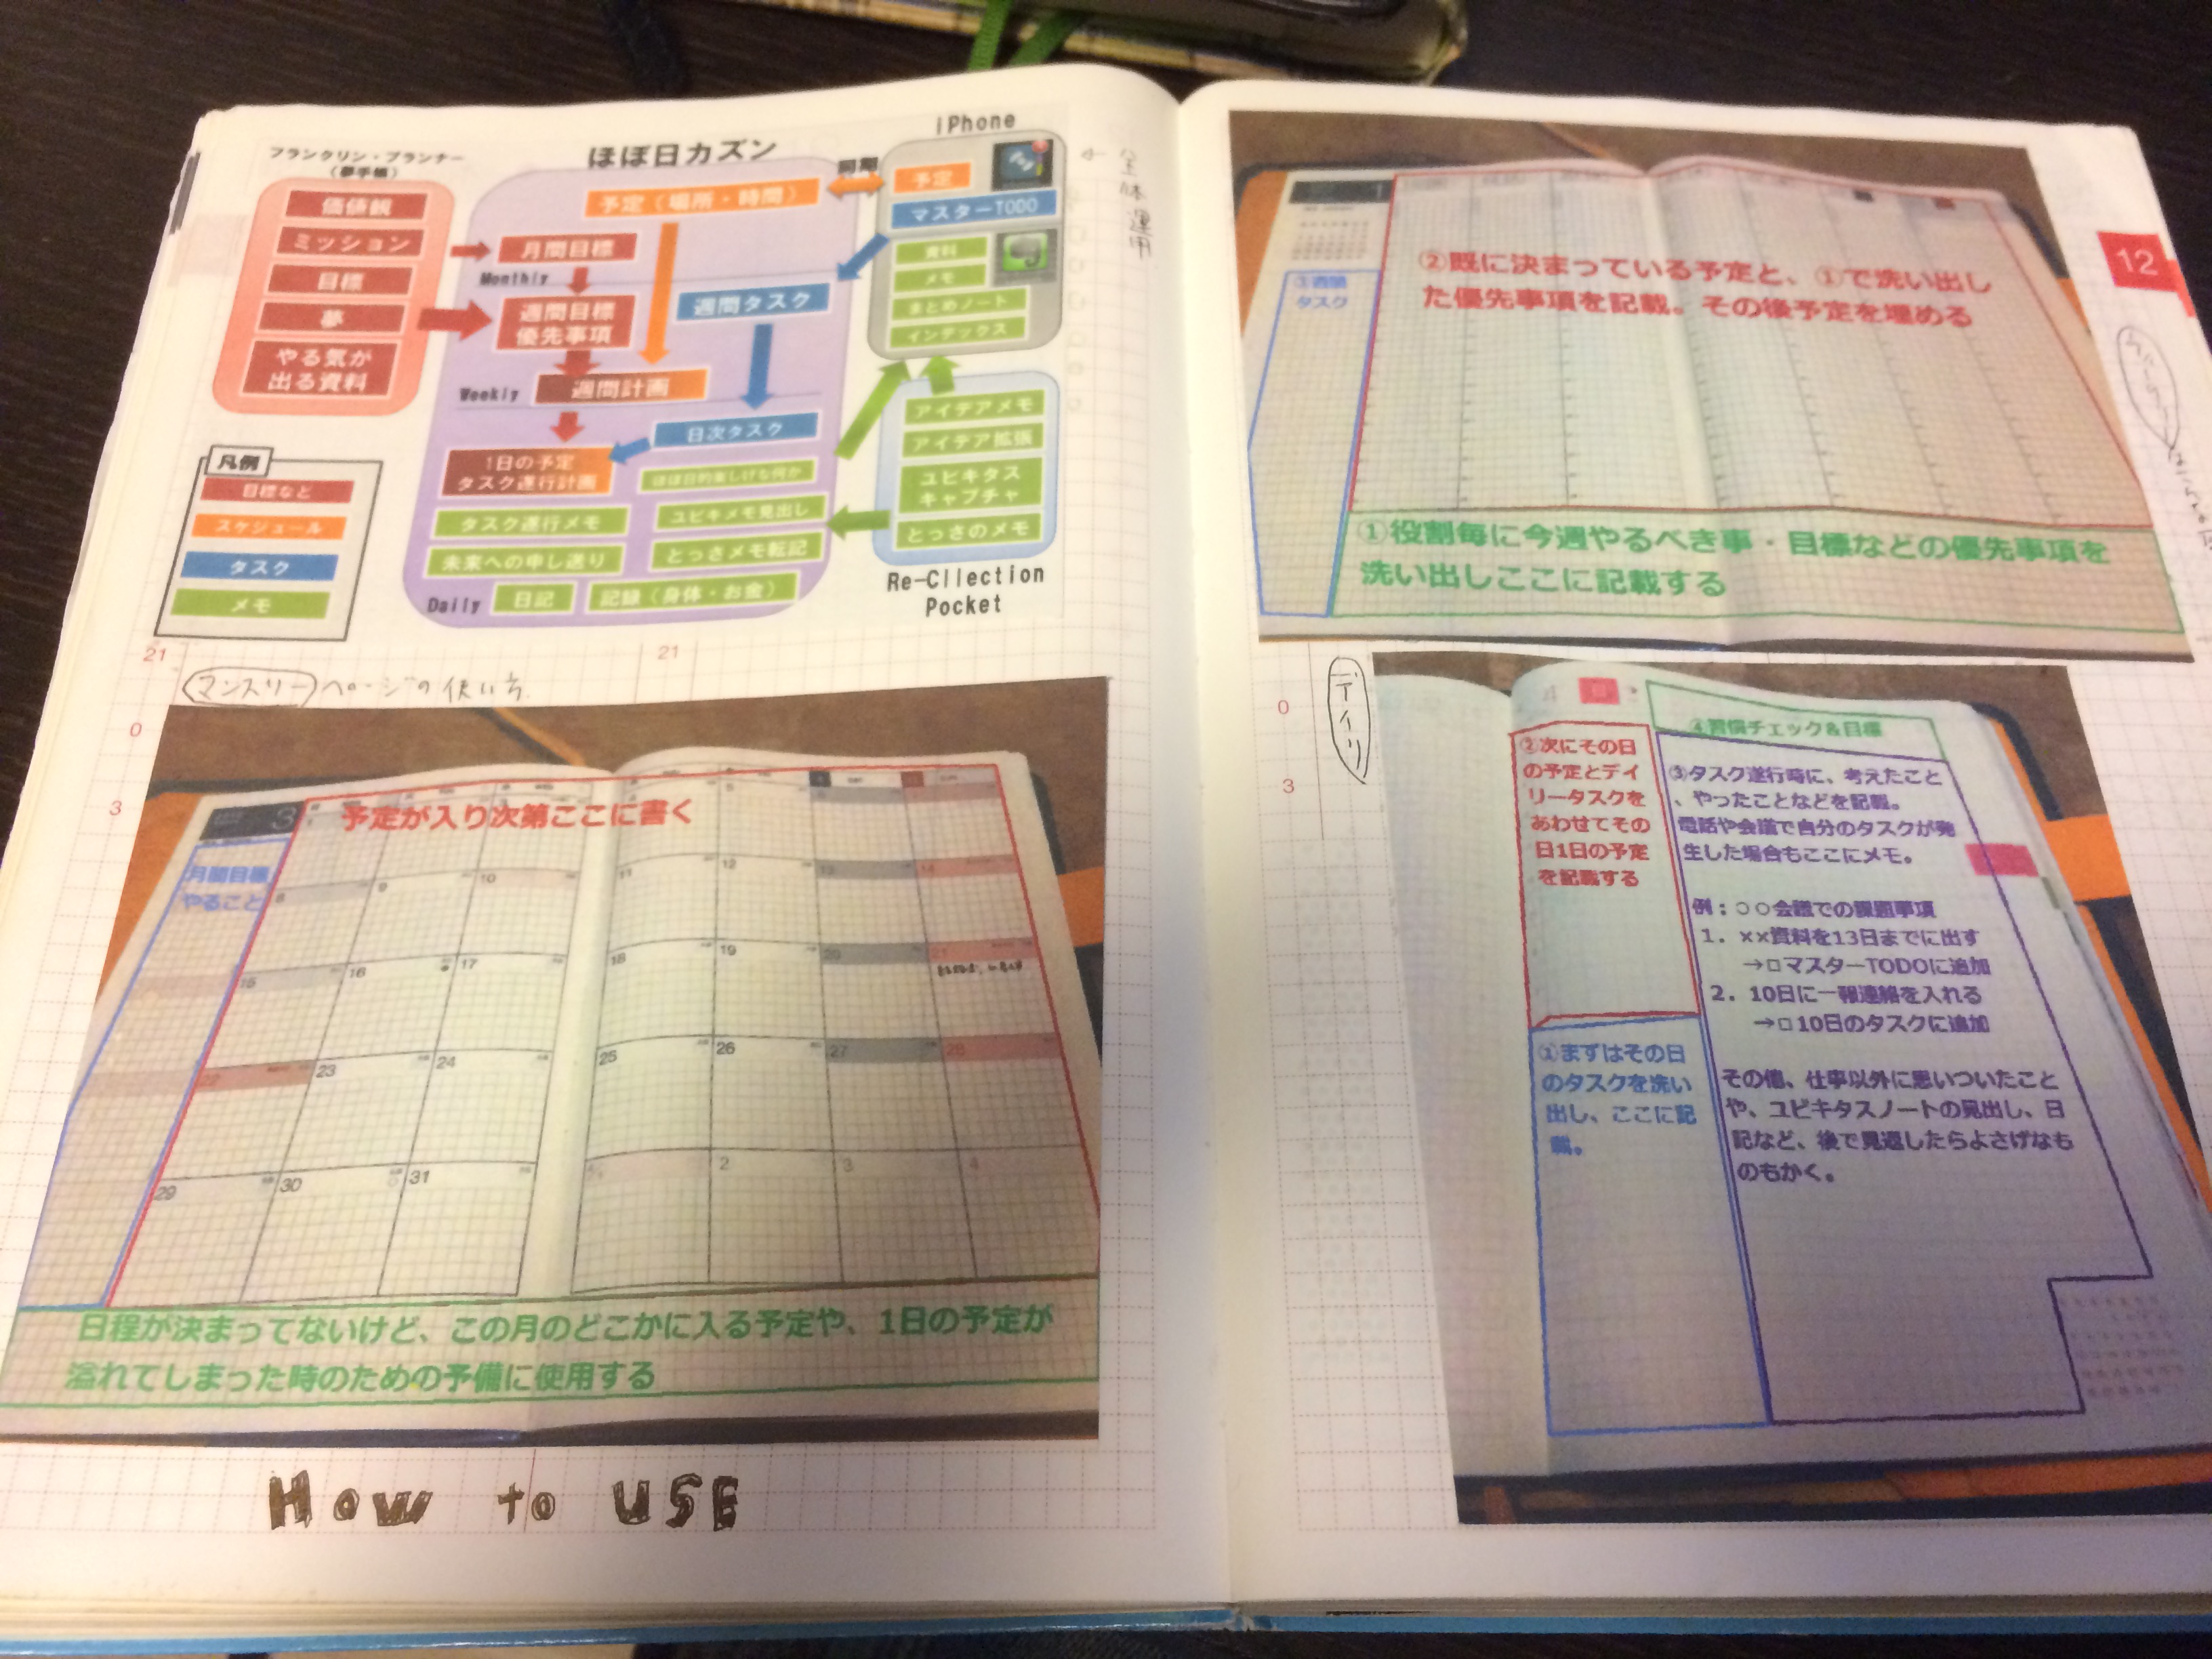 フランクリン・プランナー
（夢手帳）
価値観
ミッション
目標
夢
やる気が
出る資料
凡例
目標など
スケジュール
タスク
メモ
ほぼ日カズン
予定（場所・時間）
同期
月間目標
Monthly
週間目標
優先事項
週間タスク
Weekly
週間計画
日次タスク
1日の予定
タスク遂行計画
ほぼ日的楽しげな何か
タスク遂行メモ
ユビキメモ見出し
未来への申し送り
とっさメモ転記
Daily
日記
記録（身体・お金）
iPhone
予定
マスターTODO
資料
メモ
まとめノート
インデックス
アイデアメモ
アイデア拡張
ユビキタス
キャプチャ
とっさのメモ
Re-Cllection
Pocket
←全体運用
21
21
マンスリーページの使い方
0
3
3
予定が入り次第ここに書く
月間目標
やること
5
8
9
10
11
12
13
14
15
16
17
18
19
20
21
22
23
24
25
26
27
28
29
30
31
2
3
4
日程が決まってないけど、この月のどこかに入る予定や、1日の予定が
溢れてしまった時のための予備に使用する
How to USE
1
③週間
タスク
②既に決まっている予定と、①で洗い出し
た優先事項を記載。その後予定を埋める
①役割毎に今週やるべき事・目標などの優先事項を
洗い出しここに記載する
12
0
3
デイリ
4
④習慣チェック＆目標
②次にその日
の予定とデイ
リータスクを
あわせてその
日1日の予定
を記載する
①まずはその日
のタスクを洗い
出し、ここに記
載。
③タスク遂行時に、考えたこと
、やったことなどを記載。
電話や会議で自分のタスクが発
生した場合もここにメモ。
例：○○会議での課題事項
1．××資料を13日までに出す
→□マスターTODOに追加
2．10日に一報連絡を入れる
→□10日のタスクに追加
その他、仕事以外に思いついたこと
や、ユビキタスノートの見出し、日
記など、後で見返したらよさげなも
のもかく。